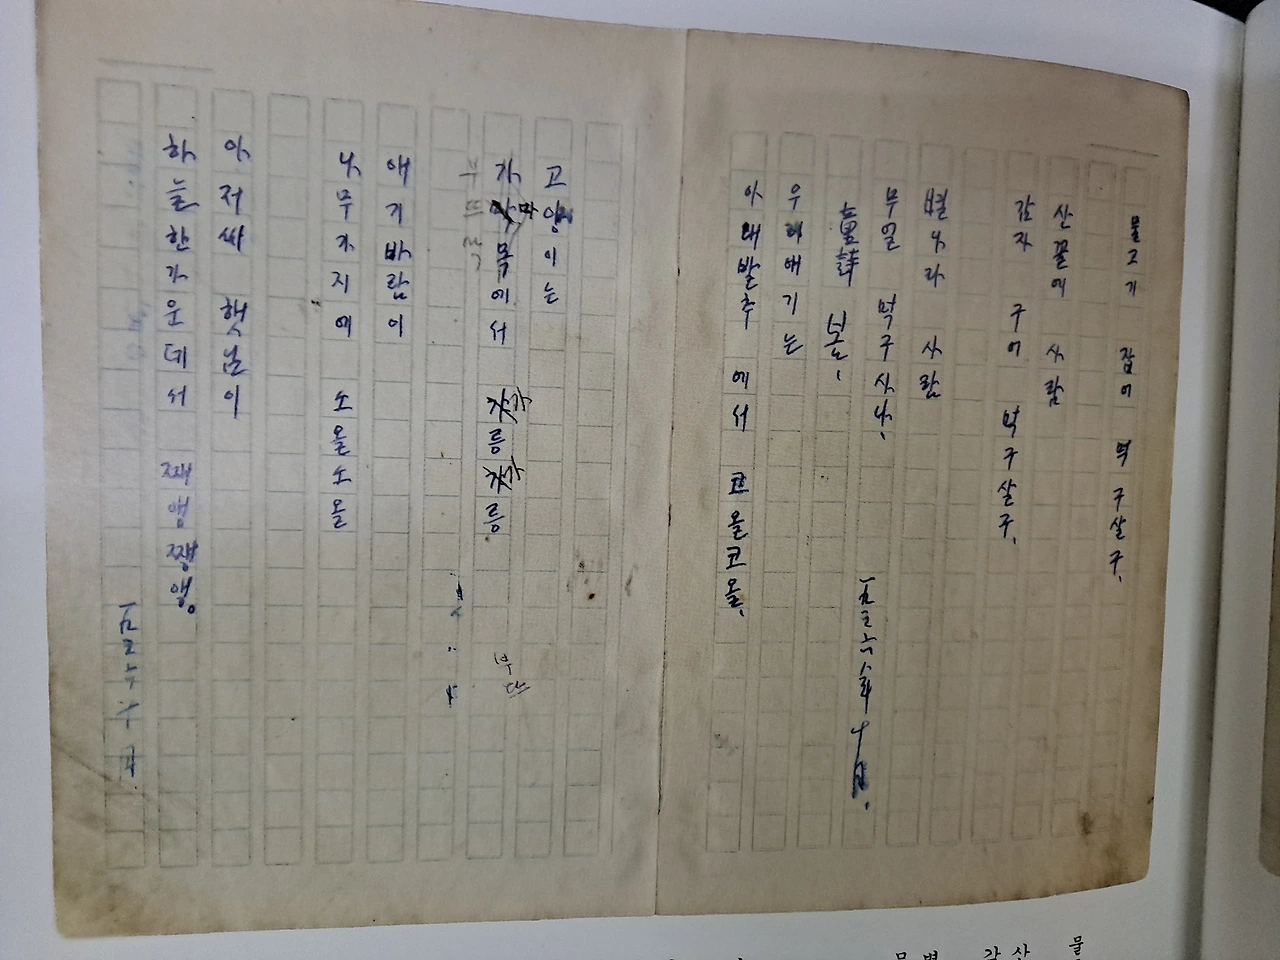 물고기 잡어 먹구살구,
산꼴에 사람
감자 구어 먹구살구,
별나라 사람
무얼 먹구사나,
一九三六年十月.
童詩 봄,
우리애기는
아래발추에서 코올코올,
고양이는
가마목에서 가릉가릉
애기바람이
나무가지에 소올소올
아저씨 햇님이
하늘한가운데서 째앵째앵。